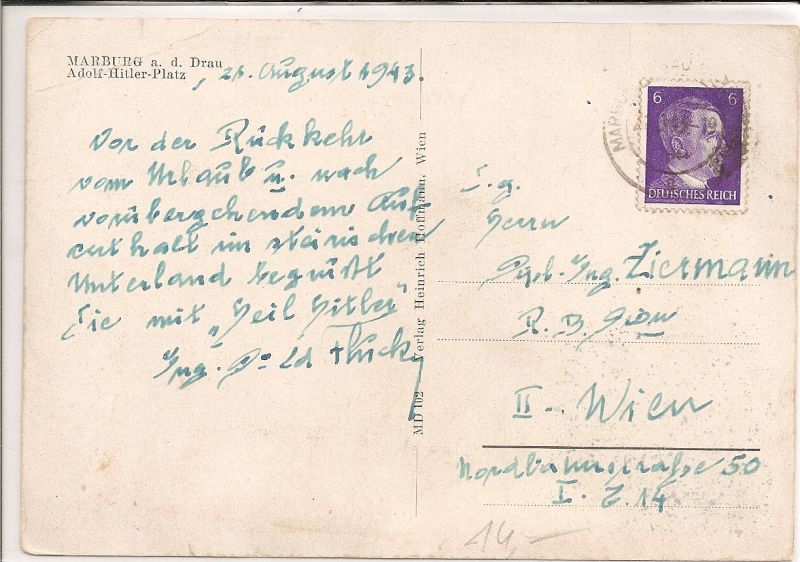 MARBURG a. d. Drau
Adolf-Hitler-Platz
, 21. August 1943.
Vor der Rückkehr
vom Urlaub u. nach
vorübergehendem Auf
enthalt im steirischen
Unterland begrüßt
Sie mit "Heil Hitler"
Ing.
MD 102 Verlag Heinrich Hoffmann, Wien
6 6
DEUTSCHES REICH
Herrn
Dipl.-Ing. Ziermann
R. B. Dion
II - Wien
Nordbahnstraße 50
I. Z. 14
14,-